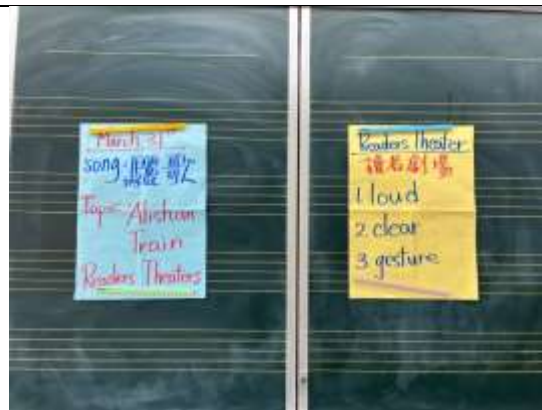 March 31st
song:
Topic Alishan
Train
Readers Theaters
Readers Theater
讀者劇場
1 loud
2 clear
3 gesture